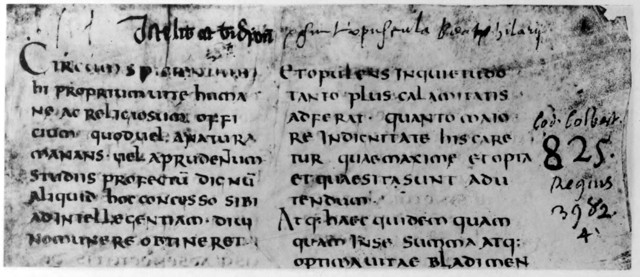 sunt opuscula Beati hilarij
CIRCUMSPICIENTI MI
hi proprium uitae huma
ne ac religiosum offi
cium quod uel a natura
manans uel a prudentium
studiis profectū dignū
aliquid hoc concesso sibi
ad intellegentiam diui
no munere obtineret
et opulens inquietudo
tanto plus calamitatis
adferat · quanto maio
re indignitate his care
tur quae maxime et opta
et quaesita sunt ad u
tendum ·
Atq: haec quidem quam
quam in se summa atq:
optima uitae bladimen
Cod. Colbert.
825.
Regius
3982
4.